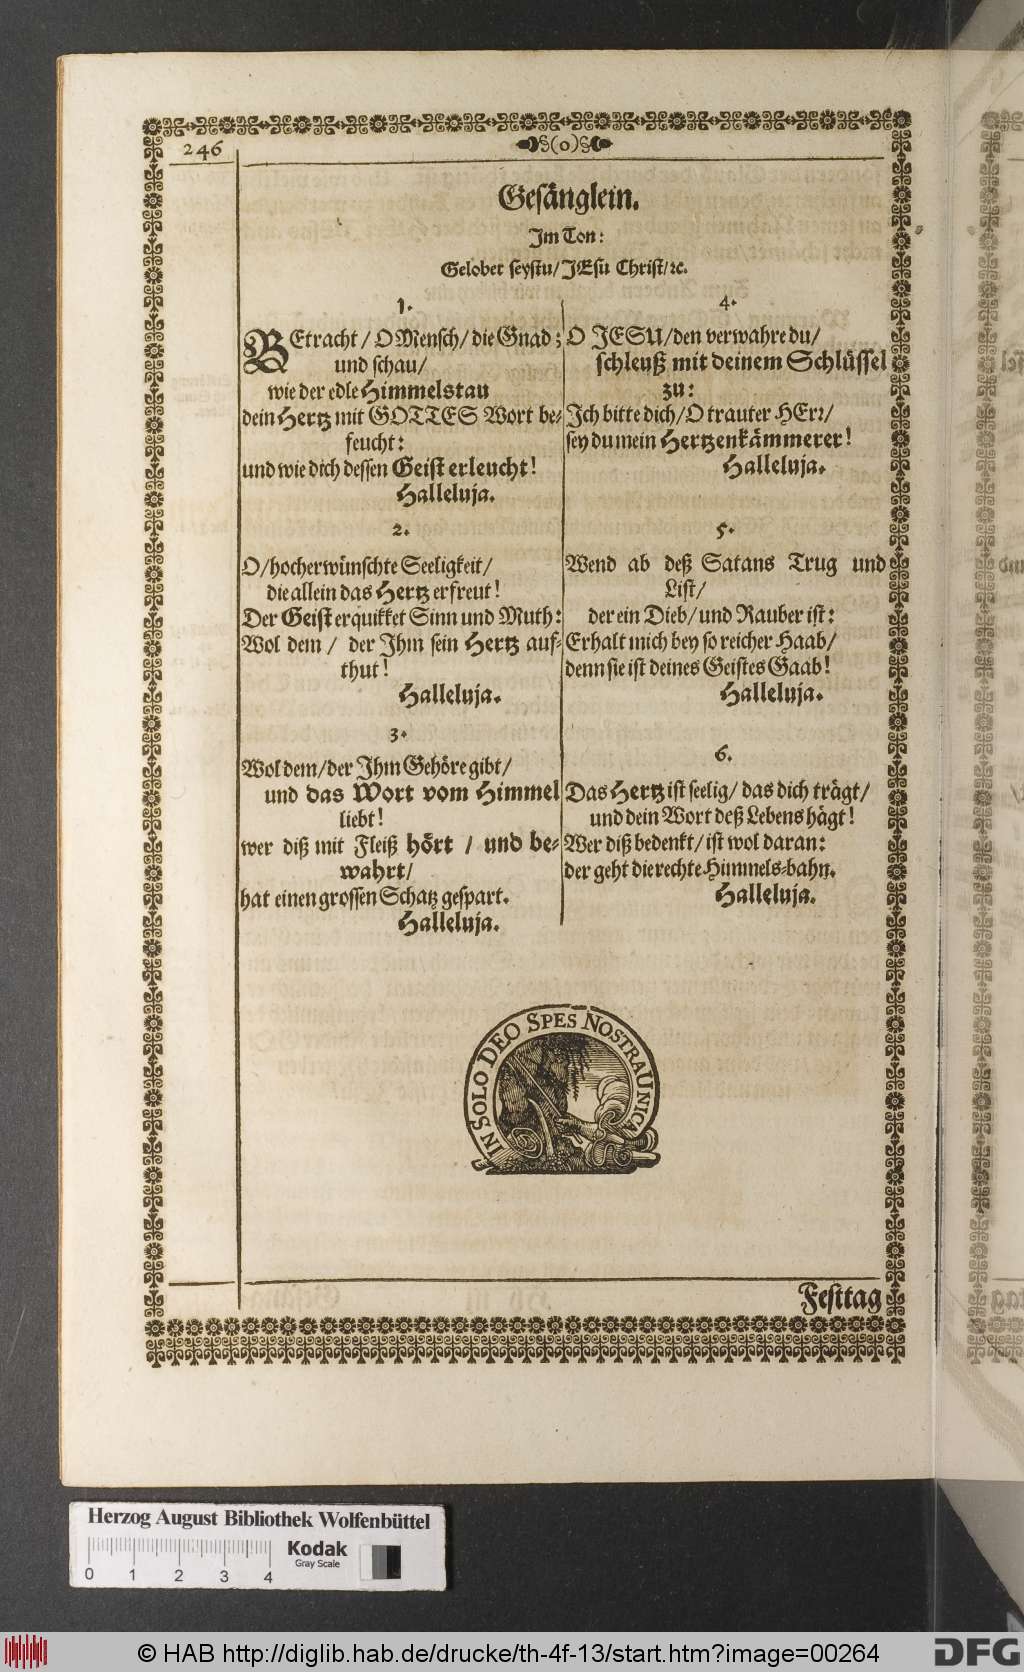 246
§(o)§
Gesänglein.
Im Ton:
Gelobet seystu/ JEsu Christ/ ꝛc.
1.
BEtracht / O Mensch/ die Gnad;
und schau/
wie der edle Himmelstau
dein Hertz mit GOTTES Wort be-
feucht:
und wie dich dessen Geist erleucht!
Halleluja.
2.
O/ hocherwünschte Seeligkeit/
die allein das Hertz erfreut!
Der Geist erquikket Sinn und Muth:
Wol dem / der Ihm sein Hertz auf-
thut!
Halleluja.
3.
Wol dem/ der Ihm Gehöre gibt/
und das Wort vom Himmel
liebt!
wer diß mit Fleiß hört / und be-
wahrt/
hat einen grossen Schatz gespart.
Halleluja.
4.
O JESU/ den verwahre du/
schleuß mit deinem Schlüssel
zu:
Ich bitte dich/ O trauter HErꝛ/
sey du mein Hertzenkämmerer!
Halleluja.
5.
Wend ab deß Satans Trug und
List/
der ein Dieb/ und Rauber ist:
Erhalt mich bey so reicher Haab/
denn sie ist deines Geistes Gaab!
Halleluja.
6.
Das Hertz ist seelig/ das dich trägt/
und dein Wort deß Lebens hägt!
Wer diß bedenkt/ ist wol daran:
der geht die rechte Himmels-bahn.
Halleluja.
IN SOLO DEO SPES NOSTRA UNICA
Festtag
Herzog August Bibliothek Wolfenbüttel
Kodak
Gray Scale
0 1 2 3 4
© HAB http://diglib.hab.de/drucke/th-4f-13/start.htm?image=00264
DFG